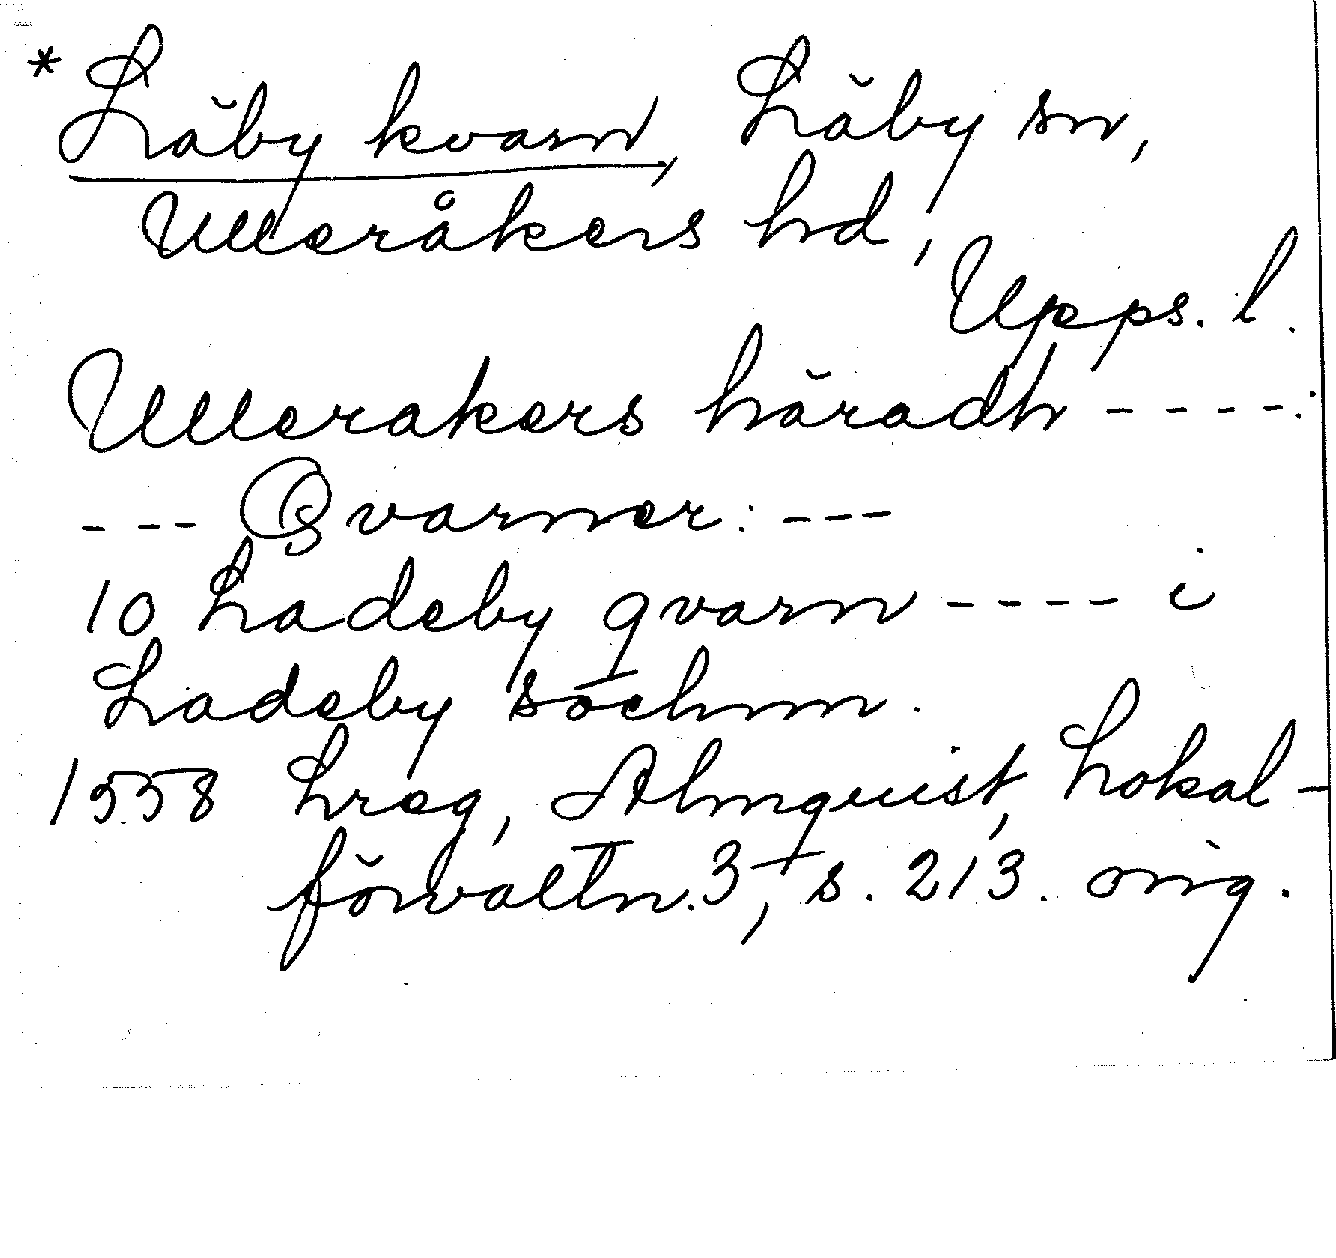 *Läby kvarn, Läby sn,
Ulleråkers hd,
Upps. l.
Ullerakers häradh ----.
--- Qvarner: ---
10 Ladeby qvarn ---- i
Ladeby sochnn.
1558 Lreg, Almquist, Lokal-
förvaltn. 3, s. 213. orig.